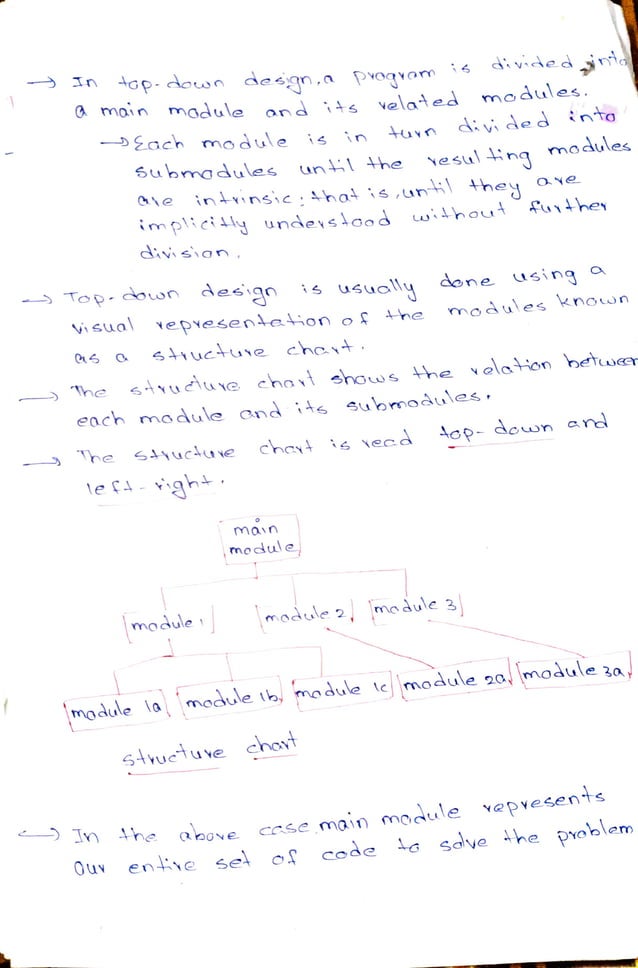 → In top-down design, a program is divided into
a main module and its related modules.
→ Each module is in turn divided into
submodules until the resulting modules
are intrinsic; that is, until they are
implicitly understood without further
division.
→ Top-down design is usually done using a
visual representation of the modules known
as a structure chart.
→ The structure chart shows the relation between
each module and its submodules.
→ The structure chart is read top-down and
left-right.
main
module
module 1 module 2 module 3
module 1a module 1b module 1c module 2a module 3a
structure chart
→ In the above case, main module represents
Our entire set of code to solve the problem